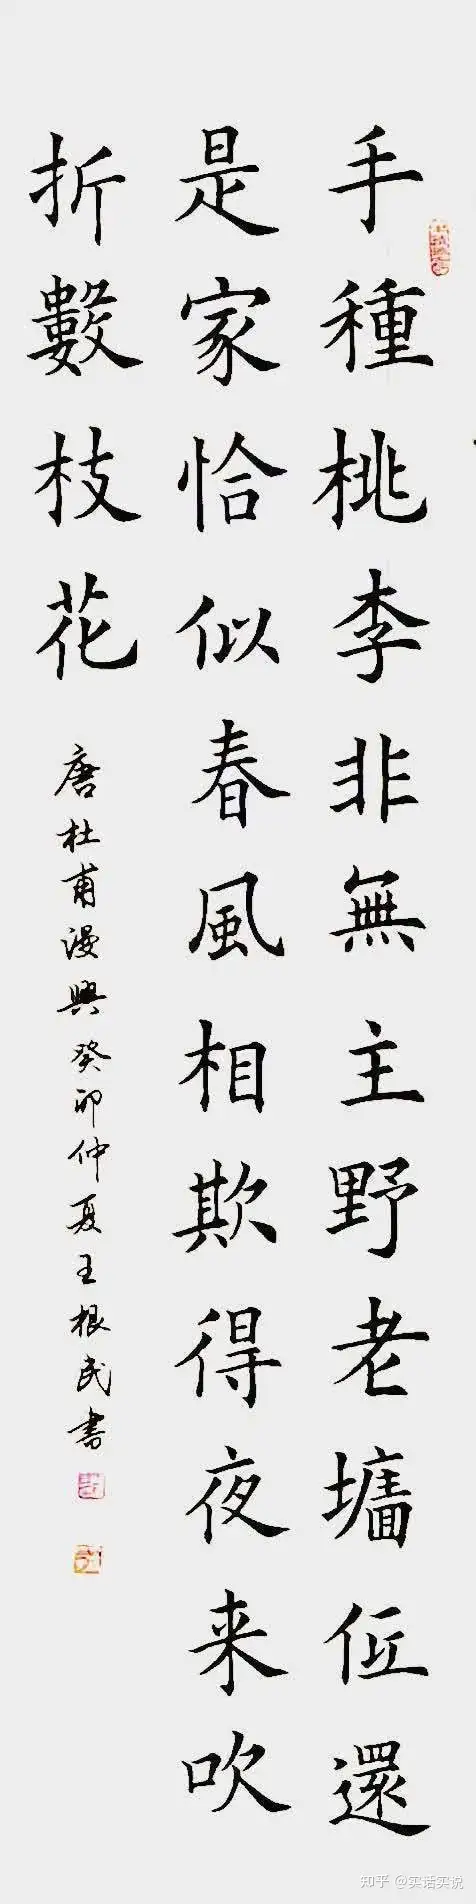 手種桃李非無主野老墻低還
是家恰似春風相欺得夜来吹
折數枝花
唐杜甫漫興癸卯仲夏王根民書
知乎 @实话实说